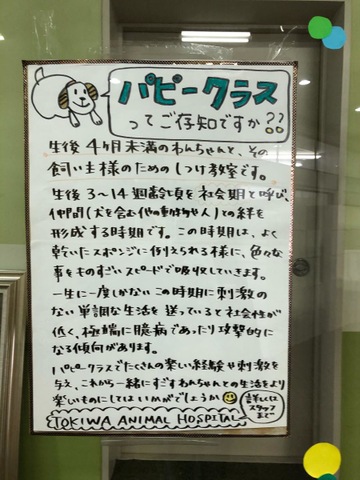 パピークラス
ってご存知ですか??
生後4ヶ月未満のわんちゃんと、その
飼い主様のためのしつけ教室です。
生後3〜14週齢頃を社会期と呼び、
仲間(犬を含む他の動物や人)との絆を
形成する時期です。この時期は、よく
乾いたスポンジに例えられる様に、色々な
事をものすごいスピードで吸収していきます。
一生に一度しかないこの時期に刺激の
ない単調な生活を送っていると社会性が
低く、極端に臆病であったり攻撃的に
なる傾向があります。
パピークラスでたくさんの楽しい経験や刺激を
与え、これから一緒にすごすわんちゃんとの生活をより
楽しいものにしてはいかがでしょうか
詳しくは
スタッフ
まで
TOKIWA ANIMAL HOSPITAL